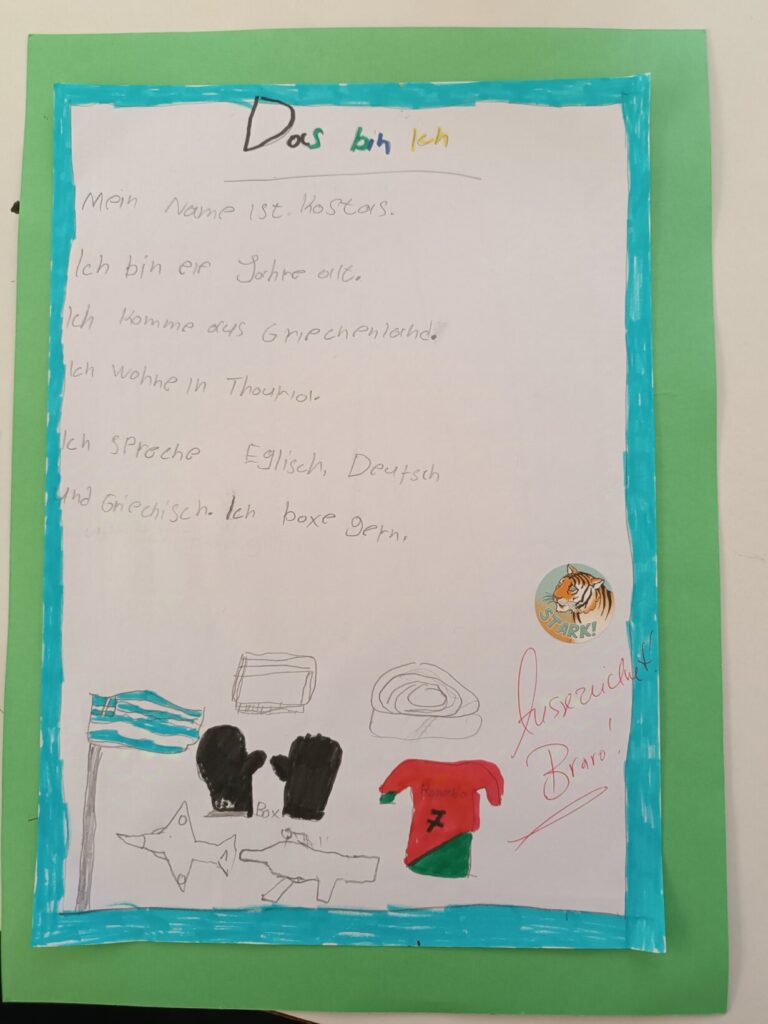 Das bin Ich
Mein Name ist. Kostas.
Ich bin elf Jahre alt.
Ich komme aus Griechenland.
Ich wohne in Thouria.
Ich spreche Eglisch, Deutsch
und Griechisch. Ich boxe gern.
STARK!
Ausgezeichnet!
Bravo!
Ronaldo
7
Box